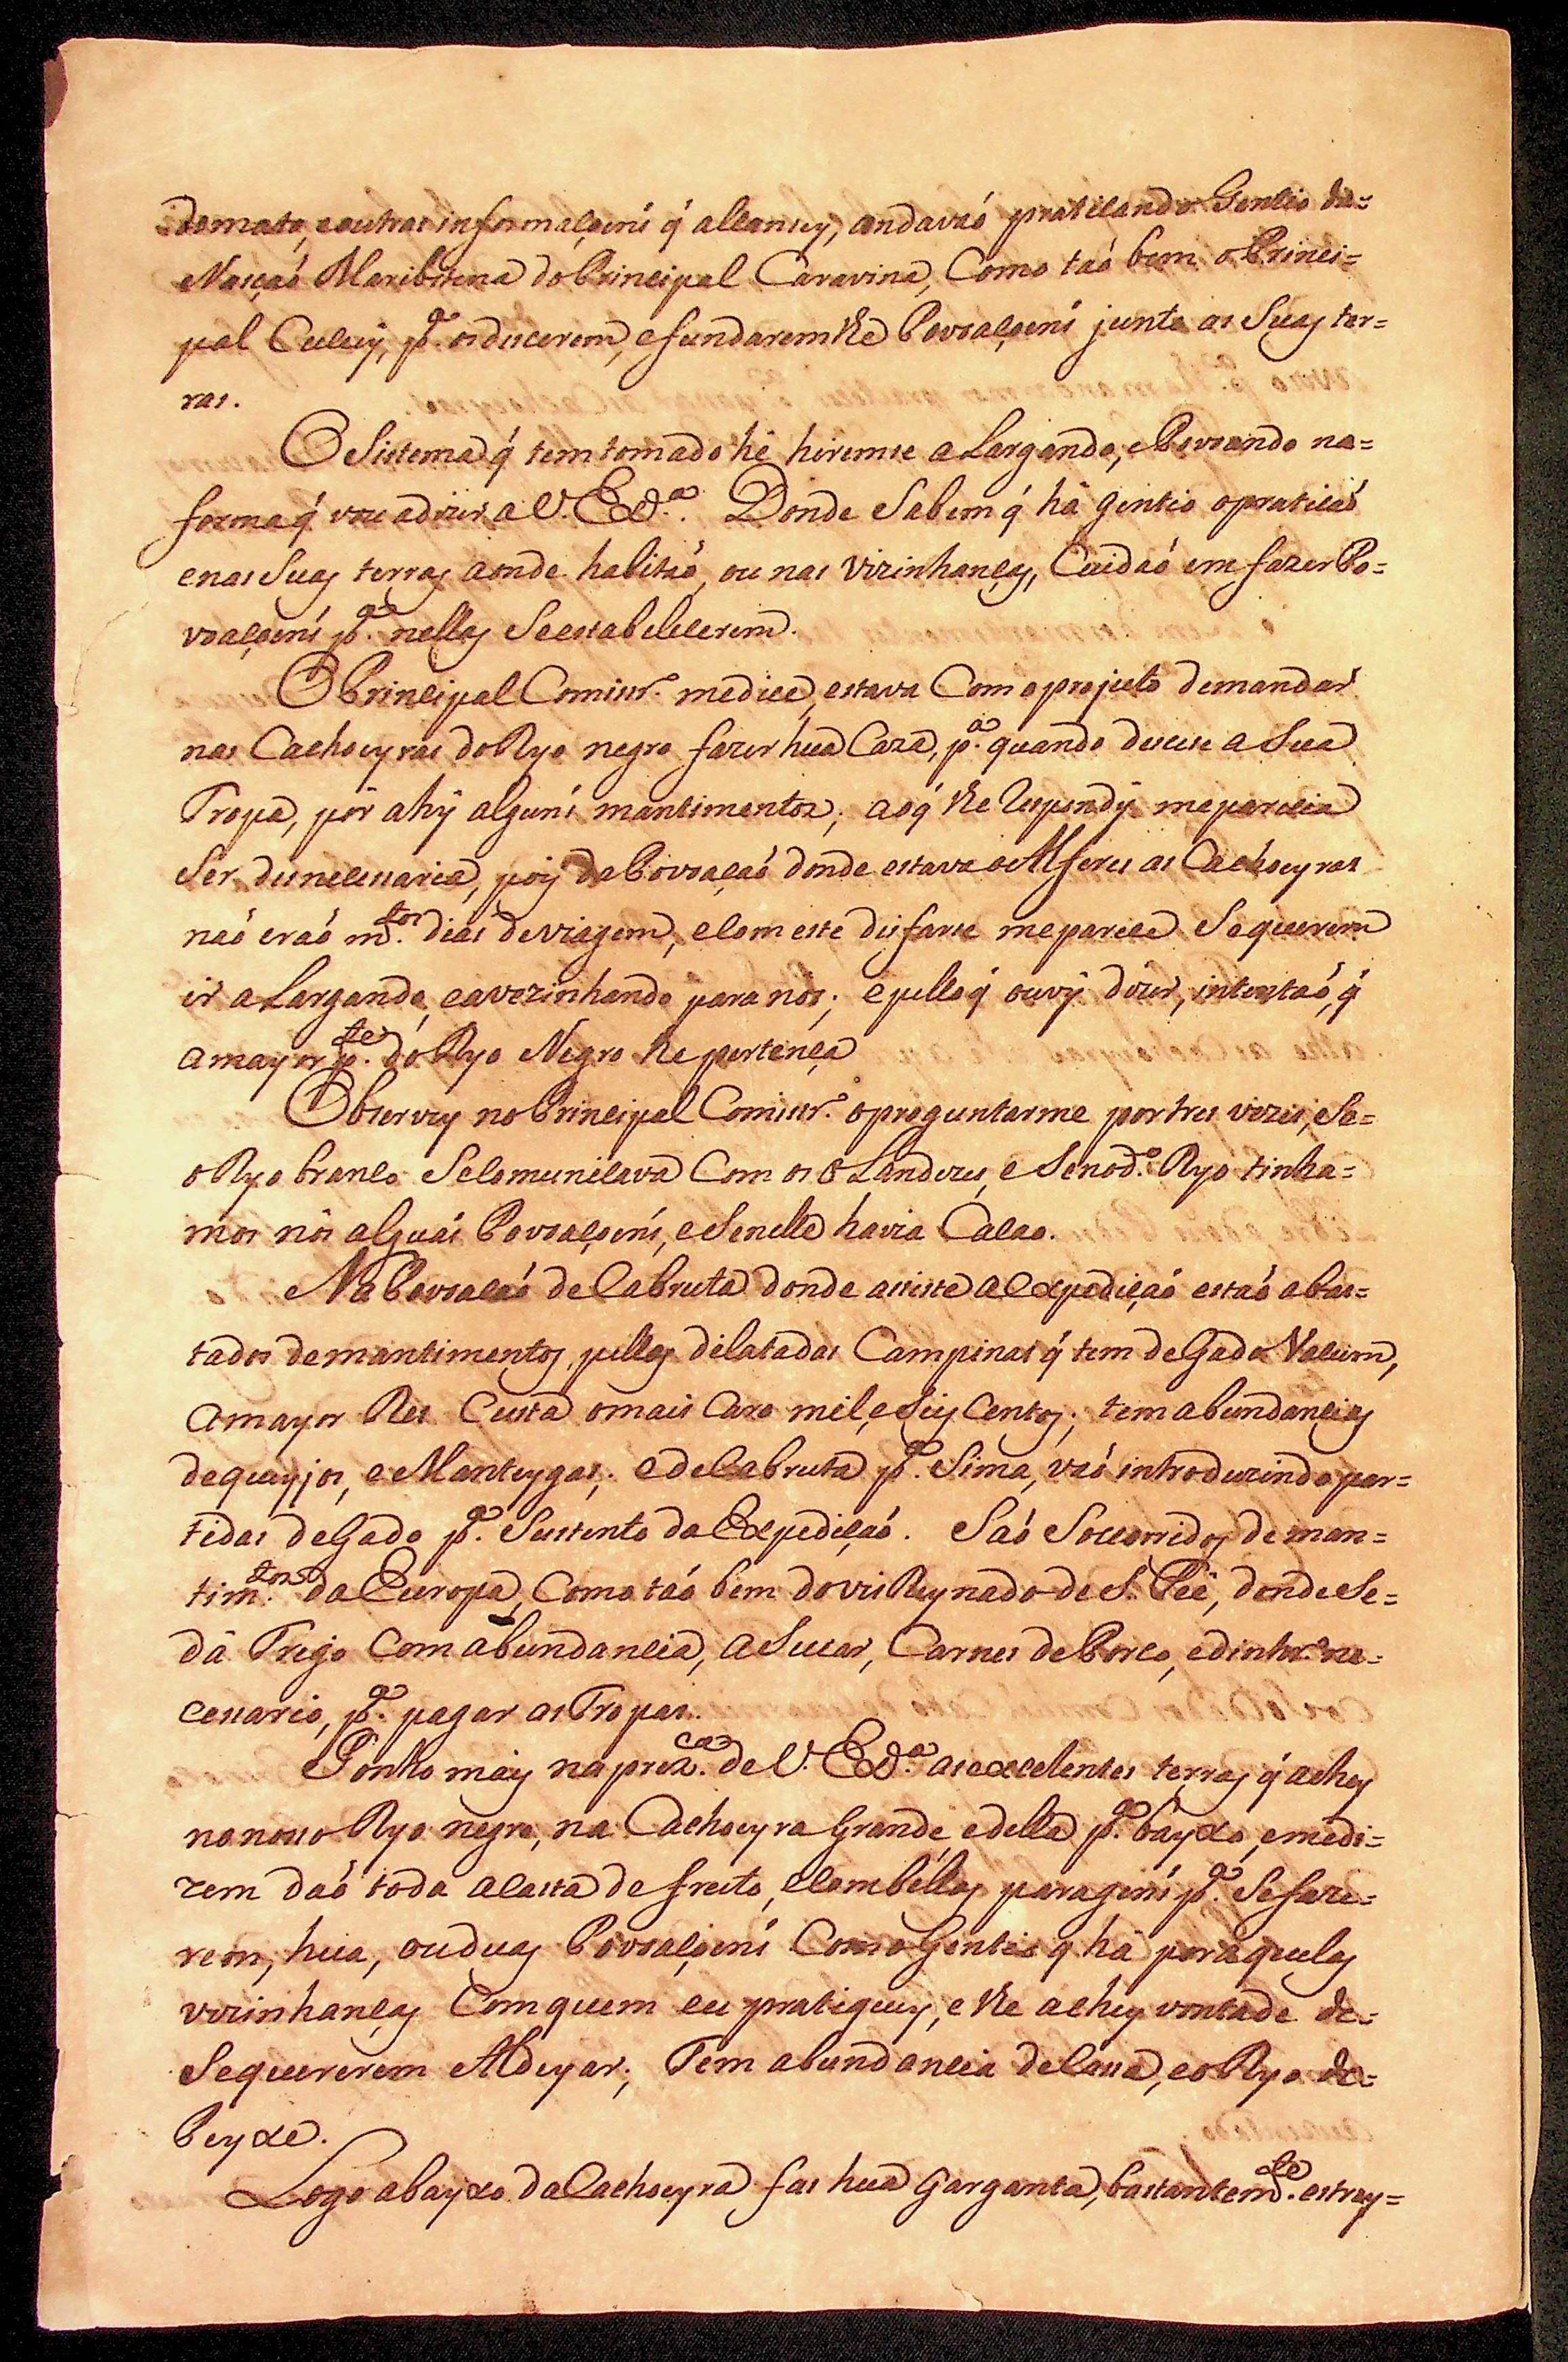 do mato, e outras informaçoens q̃ alcansey, andavaõ praticando o Gentio da=
Nasçaõ Maribitena do Principal Caravina, Como taõ bem o Princi=
pal Cucuy, p.ª os descerem, e fundarem lhe Povoaçoens junto as Suas ter=
ras.
O Sistema q̃ tem tomado hê hiremse a Largando, e Povoando na=
forma q̃ vou a dizer a V. Ex.ª. Donde Sabem q̃ hâ gentio o praticaõ
e nas Suas terras aonde habitaõ, ou nas vizinhanças, Cuidaõ em fazer Po=
voaçoens p.ª nellas Se estabelecerem.
O Principal Comissr.º me dice, estava Com o projecto de mandar
nas Cachoeyras do Ryo negro fazer hua Caza, p.ª quando descese a Sua
Tropa, pôr ahy alguns mantimentos; ao q̃ lhe Respondy me parecia
Ser desnecessaria, pois da Povoaçaõ donde estava o Alferes as Cachoeyras
naõ eraõ m.tos dias de viagem, e Com este disfarse me parece Se querem
ir a Largando, e avezinhando para nós; e pello q̃ ouvy dizer, intentaõ, q̃
a mayor p.te do Ryo Negro lhe pertença
Observey no Principal Comissr.º o preguntarme por tres vezes, Se=
o Ryo branco Se Comunicava Com os OLandezes, e Se no d.º Ryo tinha=
mos nós alguãs Povoaçoens, e Se nelle havia Cacao.
Na Povoaçaõ de Cabruta donde asiste a Expediçaõ estaõ abas=
tados de mantimentos, pellas dilatadas Campinas q̃ tem de Gado Vacum,
a mayor Res Custa o mais Caro mil, e Seis Centos; tem abundancias
de queyjos, e Manteygas; e de Cabruta p.ª Sima, vaõ introduzindo par=
tidas de Gado p.ª Sustento da Expediçaõ. Saõ Socorridos de man=
tim.tos da Europa, Como taõ bem do vis Reynado de S. Feê, donde Se=
dâ Trigo Com abundancia, aSucar, Carnes de Porco, e dinhr.º ne=
cessario, p.ª pagar as Tropas.
Ponho mais na prez.ca de V. Ex.ª as excelentes terras q̃ achey
no nosso Ryo negro, na Cachoeyra Grande, e della p.ª bayxo, e me di=
zem daõ toda a Casta de fruto, e Com bellas paragens p.ª Se faze=
rem, hua, ou duas Povoaçoens Com o Gentio q̃ hâ por aquelas
vizinhanças Com quem eu pratiquey, e lhe achey vontade de=
Se quererem Aldeyar; Tem abundancia de Cassa, e o Ryo de=
Peyxe.
Logo abayxo da Cachoeyra fas hua Garganta, bastantem.te estrey=